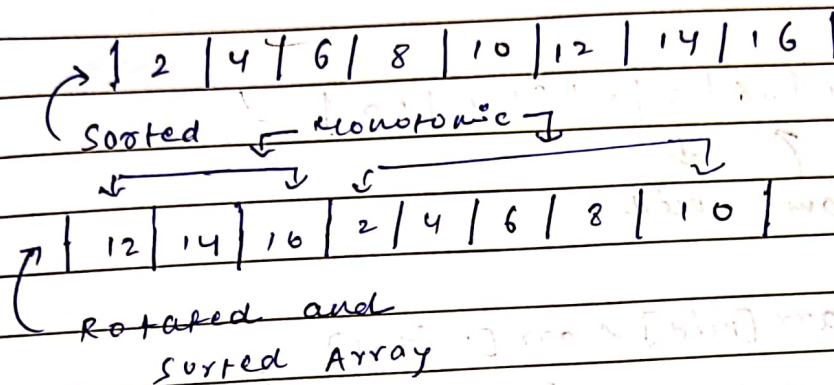 2 | 4 | 6 | 8 | 10 | 12 | 14 | 16
Sorted Monotomic
12 | 14 | 16 | 2 | 4 | 6 | 8 | 10
Rotated and
Sorted Array